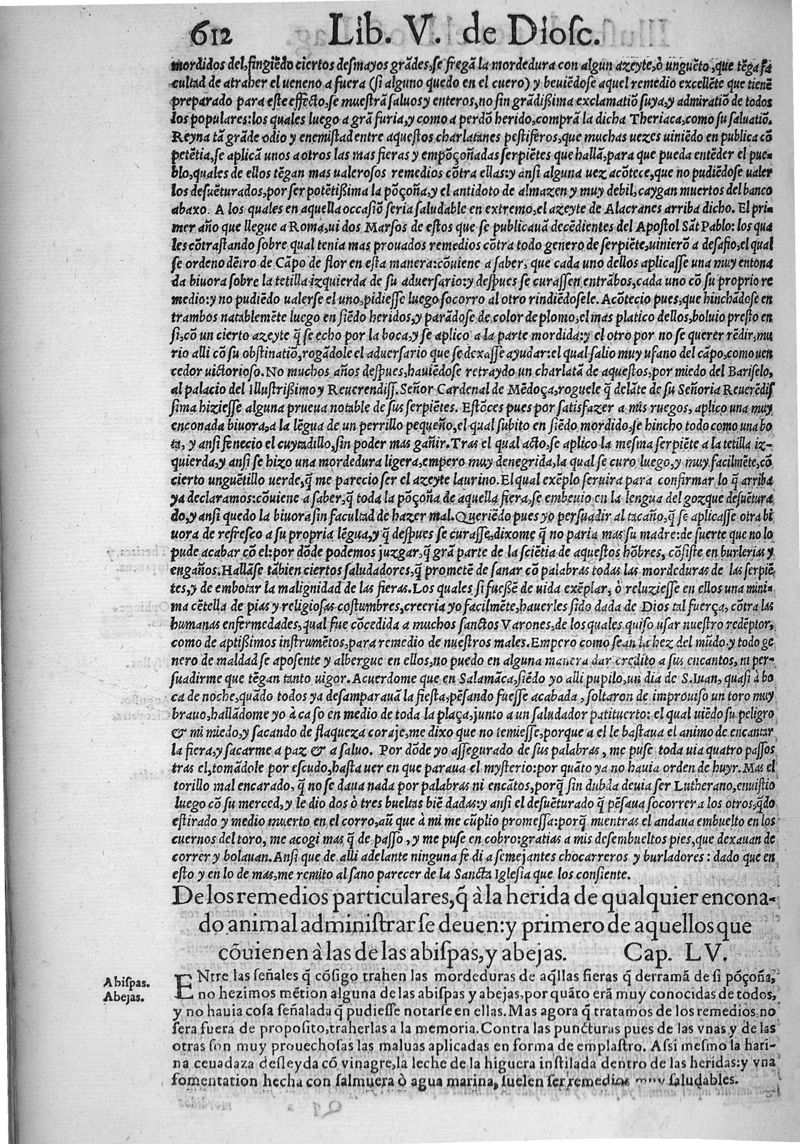 612 Lib. V. de Diosc.
mordidos del, fingiẽdo ciertos desmayos grãdes, se fregã la mordedura con algun azeyte, ò ungueto, que tẽga fa
cultad de atraher el ueneno a fuera (si alguno quedo en el cuero) y beuiẽdose aquel remedio excellẽte que tienẽ
preparado para este effecto, se muestrã saluos y enteros, no sin grãdißima exclamatiõ suya, y admiratiõ de todos
los populares: los quales luego a grã furia, y como a perdõ herido, comprã la dicha Theriaca, como su saluatiõ.
Reyna tã grãde odio y enemistad entre aquestos charlatanes pestiferos, que muchas uezes uiniẽdo en publica cõ
petẽtia, se aplicã unos a otros las mas fieras y empõçoñadas serpiẽtes que hallã, para que pueda entẽder el pue-
blo, quales de ellos tẽgan mas ualerosos remedios cõtra ellas: y ansi alguna uez acõtece, que no pudiẽdose ualer
los desuẽturados, por ser potẽtißima la põçoña, y el antidoto de almazen y muy debil, caygan muertos del banco
abaxo. A los quales en aquella occasiõ seria saludable en extremo, el azeyte de Alacranes arriba dicho. El pri-
mer año que llegue a Roma, ui dos Marsos de estos que se publicauã decẽdientes del Apostol Sãt Pablo: los qua
les cõtrastando sobre qual tenia mas prouados remedios cõtra todo genero de serpiẽte, uinierõ a desafio, el qual
se ordeno dẽtro de Cãpo de flor en esta manera: cõuiene a saber, que cada uno dellos aplicasse una muy entona
da biuora sobre la tetilla izquierda de su aduersario: y despues se curassen entrãbos, cada uno cõ su proprio re
medio: y no pudiẽdo ualerse el uno, pidiesse luego socorro al otro rindiẽdosele. Acõtecio pues, que hinchãdose en
trambos natablemẽte luego en siẽdo heridos, y parãdose de color de plomo, el mas platico dellos, boluio presto en
si, cõ un cierto azeyte q̃ se echo por la boca, y se aplico a la parte mordida: y el otro por no se querer rẽdir, mu
rio alli cõ su obstinatiõ, rogãdole el aduersario que se dexasse ayudar: el qual salio muy ufano del cãpo, como uen
cedor uictorioso. No muchos años despues, hauiẽdose retraydo un charlatã de aquestos, por miedo del Bariselo,
al palacio del Illustrißimo y Reuerendiss. Señor Cardenal de Mẽdoça, roguele q̃ delãte de su Señoria Reuerẽdis
sima hiziesse alguna prueua notable de sus serpiẽtes. Estõces pues por satisfazer a mis ruegos, aplico una muy
enconada biuora, a la lẽgua de un perrillo pequeño, el qual subito en siẽdo mordido, se hincho todo como una bo
ta, y ansi fenecio el cuytadillo, sin poder mas gañir. Tras el qual acto, se aplico la mesma serpiẽte a la tetilla iz-
quierda, y ansi se hizo una mordedura ligera, empero muy denegrida, la qual se curo luego, y muy facilmẽte, cõ
cierto unguẽtillo uerde, q̃ me parecio ser el azeyte laurino. El qual exẽplo seruira para confirmar lo q̃ arriba
ya declaramos: cõuiene a saber, q̃ toda la põçoña de aquella fiera, se embeuio en la lengua del gozque desuẽtura
do, y ansi quedo la biuora sin facultad de hazer mal. Queriẽdo pues yo persuadir al tacaño, q̃ se aplicasse otra bi
uora de refresco a su propria lẽgua, y q̃ despues se curasse, dixome q̃ no paria mas su madre: de suerte que no lo
pude acabar cõ el: por dõde podemos juzgar, q̃ grã parte de la sciẽtia de aquestos hõbres, cõsiste en burlerias y
engaños. Hallãse tãbien ciertos saludadores, q̃ prometẽ de sanar cõ palabras todas las mordeduras de las serpiẽ
tes, y de embotar la malignidad de las fieras. Los quales si fueßẽ de uida exẽplar, ò reluziesse en ellos una mini-
ma cẽtella de pias y religiosas costumbres, creeria yo facilmẽte, hauerles sido dada de Dios tal fuerça, cõtra las
humanas enfermedades, qual fue cõcedida a muchos sanctos Varones, de los quales quiso usar nuestro redẽptor,
como de aptißimos instrumẽtos, para remedio de nuestros males. Empero como sean la hez del mũdo, y todo ge
nero de maldad se aposente y albergue en ellos, no puedo en alguna manera dar credito a sus encantos, ni per-
suadirme que tẽgan tanto uigor. Acuerdome que en Salamãca, siẽdo yo alli pupilo, un dia de S. Iuan, quasi à bo
ca de noche, quãdo todos ya desamparauã la fiesta, pẽsando fuesse acabada, soltaron de improuiso un toro muy
brauo, hallãdome yo à caso en medio de toda la plaça, junto a un saludador patituerto: el qual uiẽdo su peligro
& mi miedo, y sacando de flaqueza coraje, me dixo que no temiesse, porque a el le bastaua el animo de encantar
la fiera, y sacarme a paz & a saluo. Por dõde yo assegurado de sus palabras, me puse toda uia quatro passos
tras el, tomãdole por escudo, hasta uer en que paraua el mysterio: por quãto ya no hauia orden de huyr. Mas el
torillo mal encarado, q̃ no se daua nada por palabras ni encãtos, porq̃ sin dubda deuia ser Lutherano, enuistio
luego cõ su merced, y le dio dos ò tres bueltas biẽ dadas: y ansi el desuẽturado q̃ pẽsaua socorrer a los otros, q̃do
estirado y medio muerto en el corro, aũ que à mi me cũplio promessa: porq̃ mientras el andaua embuelto en los
cuernos del toro, me acogi mas q̃ de passo, y me puse en cobro: gratias a mis desembueltos pies, que dexauan de
correr y bolauan. Ansi que de alli adelante ninguna fe di a semejantes chocarreros y burladores: dado que en
esto y en lo de mas, me remito al sano parecer de la Sancta Iglesia que los consiente.
De los remedios particulares, q̃ à la herida de qualquier encona-
do animal administrar se deuen: y primero de aquellos que
cõuienen à las de las abispas, y abejas. Cap. LV.
Abispas.
Abejas.
ENtre las señales q̃ cõsigo trahen las mordeduras de aq̃llas fieras q̃ derramã de si põçoña,
no hezimos mẽtion alguna de las abispas y abejas, por quãto erã muy conocidas de todos,
y no hauia cosa señalada q̃ pudiesse notarse en ellas. Mas agora q̃ tratamos de los remedios, no
sera fuera de proposito, traherlas a la memoria. Contra las puncturas pues de las vnas y de las
otras son muy prouechosas las maluas aplicadas en forma de emplastro. Assi mesmo la hari-
na ceuadaza desleyda cõ vinagre, la leche de la higuera instilada dentro de las heridas: y vna
fomentation hecha con salmuera ò agua marina, suelen ser remedios muy saludables.